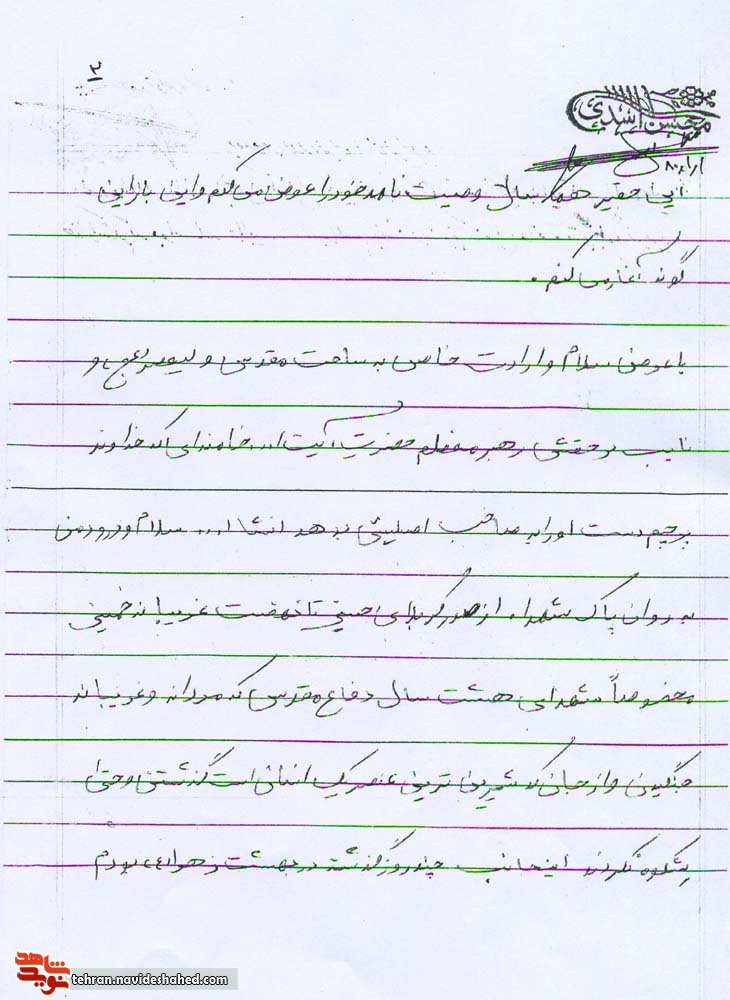 ۲
محسن اسدی
۸۰/۱/۱
این حقیر هر سال وصیت نامه خود را عوض می کنم و این بار این
گونه آغاز می کنم.
با عرض سلام و ارادت خاص به ساحت مقدس ولیعصر (عج) و
نایب بر حقش رهبر معظم حضرت آیت ا... خامنه‌ای که خداوند
پرچم دست او را به صاحب اصلیش بدهد انشا ا... سلام و درود من
به روان پاک شهدا، از صدر کربلای حسینی تا نهضت غریبانه خمینی
مخصوصاً شهدای هشت سال دفاع مقدس که مردانه و غریبانه
جنگیدن و از جان که شیرین ترین عنصر یک انسان است گذشتن و حتی
شکوه نکردند اینجانب چند روز گذشته در بهشت زهرا ۲۴ بودم
نوید شاهد
tehran.navideshahed.com